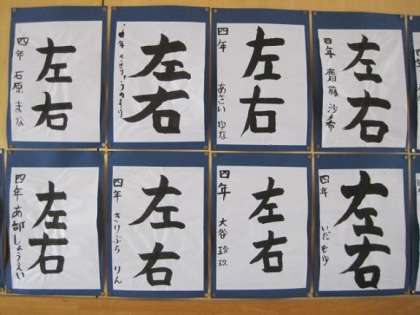 左右
四年 石原 まな
左右
左右
四年 あさい ゆな
左右
四年 齋藤 沙希
左右
四年 あ部 しょうえい
左右
四年 きりぶち りん
左右
四年 大谷 玲玖
左右
四年 いだ